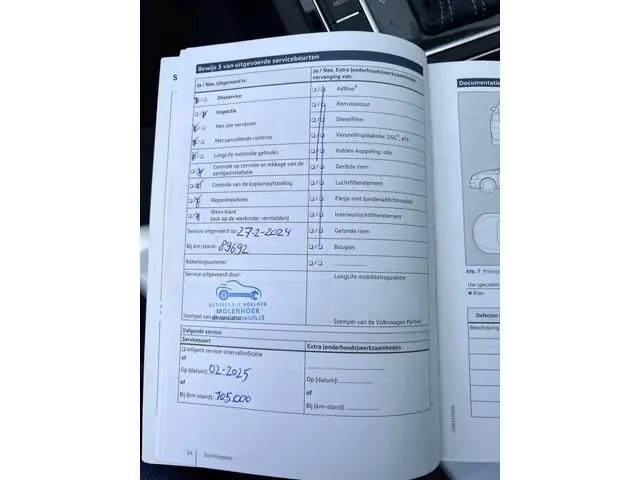 Bewijs 5 van uitgevoerde servicebeurten
S
Ja / Nee. Uitgevoerd is:
Olieservice
Inspectie
Met olie verversen
Met aanvullende controle
LongLife motorolie gebruikt
Controle op corrosie en lekkage van de aardgasinstallatie
Controle van de koplampafstelling
Reparatieadvies
Wenst klant
(ook op de werkorder vermelden)
Service uitgevoerd op: 27-2-2024
Bij km-stand: 89692
Rekeningnummer:
Service uitgevoerd door:
AUTOBEDRIJF ROELOFS
MOLENHOEK
Ja / Nee. Extra (onderhouds)werkzaamheden
vervanging van:
AdBlue®
Remvloeistof
Dieselfilter
Versnellingsbakolie: DSG®, ATF
Haldex-koppeling: olie
Geribde riem
Luchtfilterelement
Flesje met bandenafdichtmiddel
Interieurluchtfilterelement
Getande riem
Bougies
LongLife mobiliteitsgarantie:
Stempel van de Volkswagen Partner
Volgende service
Servicesoort
volgens service-intervalindicatie
of
Op (datum): 02-2025
of
Bij (km-stand): 105.000
Extra (onderhouds)werkzaamheden
Op (datum):
of
Bij (km-stand):
14 Serviceplan
Documentatie
Afb. 7
Uw specialist
Kras
Defecten
Beschrijving